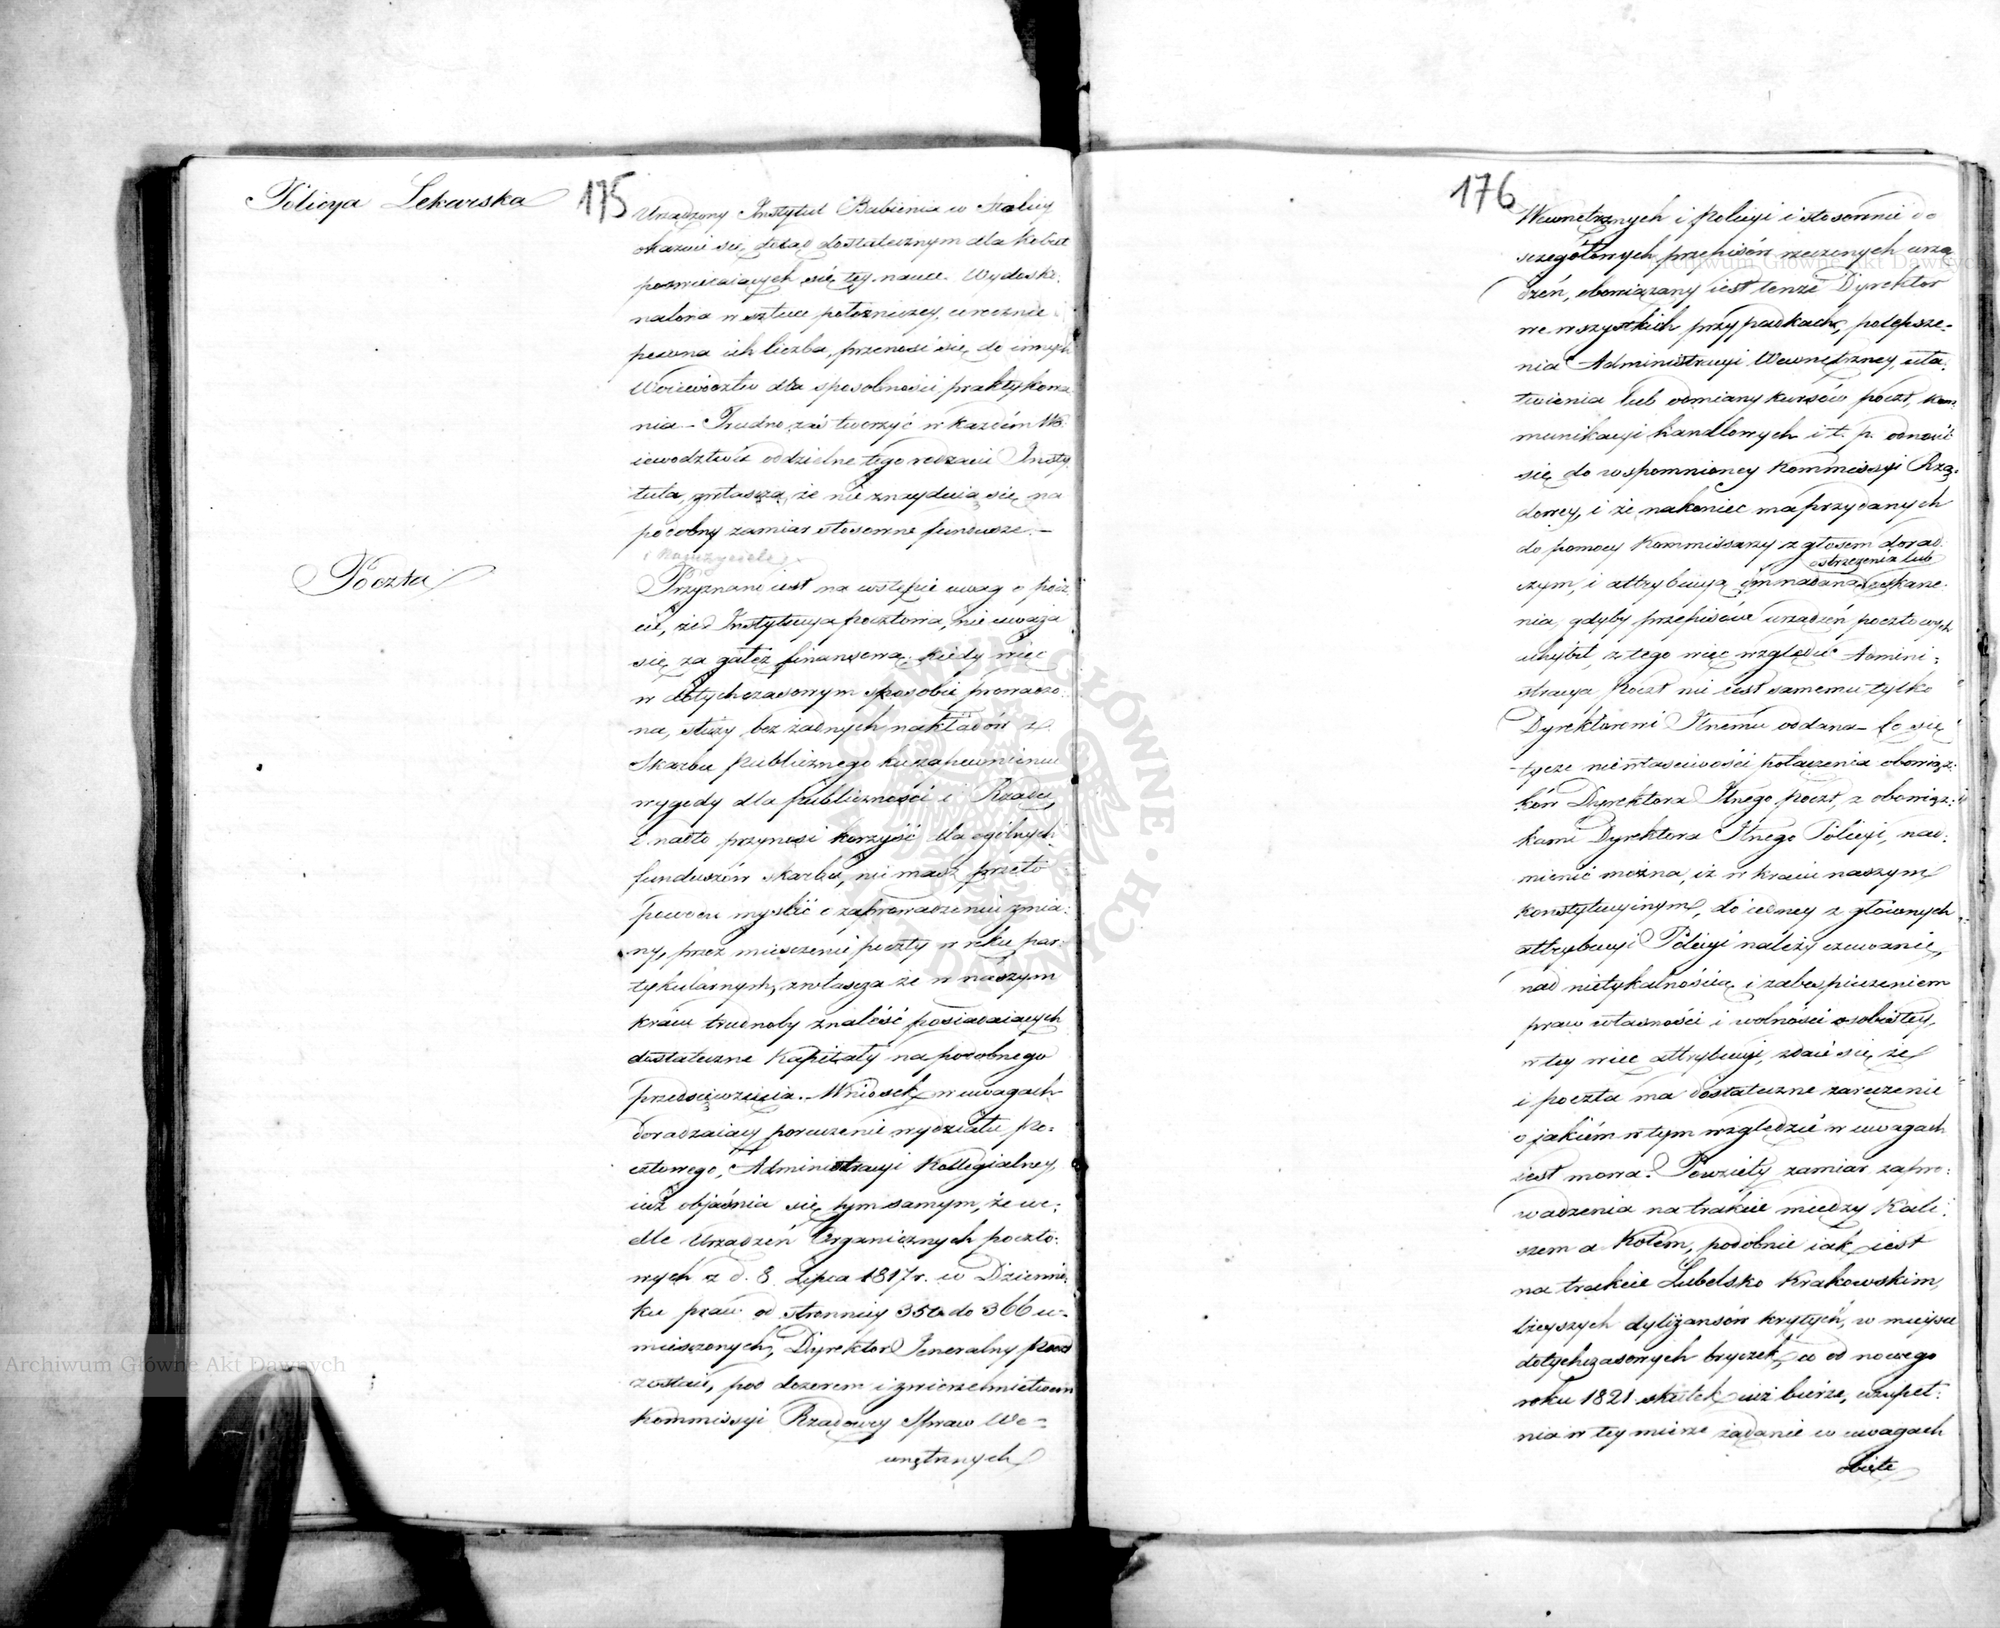 Policya Lekarska
175
Urządzony Instytut Babienia w Stolicy
okazuie się dotąd dostatecznym dla kobiet
poświęcaiących się tey nauce. Wydosko-
nalona w sztuce położniczey, corocznie
pewna ich liczba, przenosi się do innych
Woiewództw dla sposobności praktykowa
nia – Trudno zaś tworzyć w każdém Wo-
iewództwie oddzielne tego rodzaiu Insty
tuta, zwłaszcza że nie znayduią się na
podobny zamiar stosowne fundusze. –
Poczta
Przyznane iest na wstępie uwag o pocz
cie, że Instytucya pocztowa, nie uważa
się za gałęź finansową; kiedy więc
w dotychczasowym sposobie prowadzo-
na, służy bez żadnych nakładów z
Skarbu Publicznego ku zapewnieniu
wygody dla publiczności i Rządu,
i nadto przynosi korzyść dla ogólnych
funduszów skarbu, nie masz przeto
powodu myślić o zaprowadzeniu zmia-
ny, przez mieszczenie poczty w ręku par-
tykularnych, zwłaszcza że w naszym
kraiu trudnoby znaleść posiadaiących
dostateczne kapitały na podobnego
przedsięwzięcia. Wniosek w uwagach
doradzaiący poruczenie wydziału po-
cztowego, Administracyi Kollegialney,
iuż obiaśnia się tym samym, że we-
dle Urządzeń Organicznych poczto-
wych z d. 8 Lipca 1817 r. w Dzienni-
ku praw od stronnicy 352 do 366 u-
mieszczonych, Dyrektor Jeneralny poczt
zostaie, pod dozorem i zwierzchnictwem
Kommissyi Rządowey Spraw We-
wnętrznych
176
Wewnętrznych i Policyi i stosownie do
szczegółowych przepisów rzeczonych urzą
dzeń, obowiązany iest tenże Dyrektor
we wszystkich przypadkach, polepsze-
nia Administracyi Wewnętrzney, uła-
twienia lub odmiany kursów poczt, kom-
munikacyi handlowych i t. p. odnosić
się do wspomnioney Kommissyi Rzą-
dowey, i że nakoniec ma przydanych
do pomocy Kommissarzy z głosem dorad-
ostrzeżenia lub
czym, i attrybucyą im nadaną zaskarże-
nia, gdyby przepisów urządzeń pocztowych
uchybił, z tego więc względu Admini-
stracya Poczt nie iest samemu tylko
Dyrektorowi Jlnému oddana – Co się
tycze niewłaściwości połączenia obowiąz-
ków Dyrektora Jlnego poczt, z obowiąz-
kami Dyrektora Jlnego Policyi, nad-
mienić można, iż w kraiu naszym
konstytucyinym, do iedney z głównych
attrybucyi Policyi należy czuwanie,
nad nietykalnością i zabezpieczeniem
praw własności i wolności osobistey,
w tey więc attrybucyi, zdaie się, że
i poczta ma dostateczne zaręczenie
o jakiém w tym względzie w uwagach
iest mowa. Powzięty zamiar zapro-
wadzenia na trakcie między Kali-
szem a Kołem, podobnie iak iest
na trakcie Lubelsko Krakowskim,
lżeyszych dyliżansów krytych, w mieysce
dotychczasowych bryczek, a od nowego
roku 1821 skutek iuż bierze, uzupeł-
nia w tey mierze żądanie w uwagach
Archiwum Główne Akt Dawnych